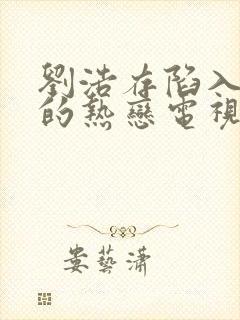 劉浩存陷入
的熱戀電視
婁藝瀟